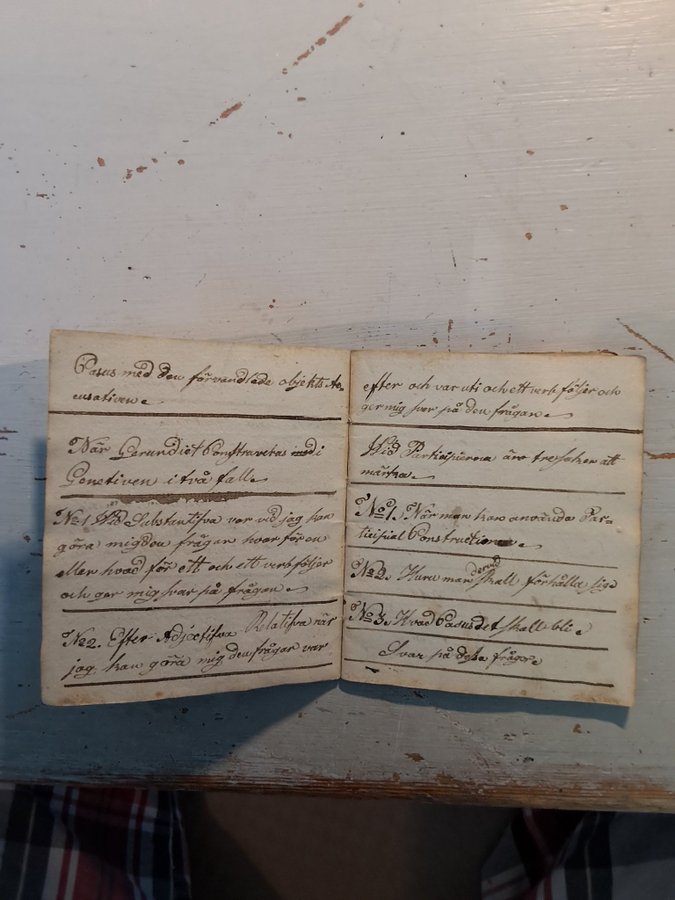 Casus med den förvandlade objekts Ac-
cusativen.
När Gerundiet Construeras med i
Genetiven i två fall.
No 1. Wid Substantifva var vid jag kan
göra mig den frågan hvar för en
eller hvad för ett och ett verb följer
och ger mig svar på frågan.
No 2. Efter Adjectifva Relatifva när
jag kan göra mig den frågan var
efter och var uti och ett verb följer och
ger mig svar på den frågan.
Wid Participierna äro tre saker att
märka.
No 1. När man kan använda Par-
ticipial Constructionen.
No 2. Huru man dervid skall förhålla sig.
No 3. Hvad Casus det skall bli.
Svar på dessa frågor.